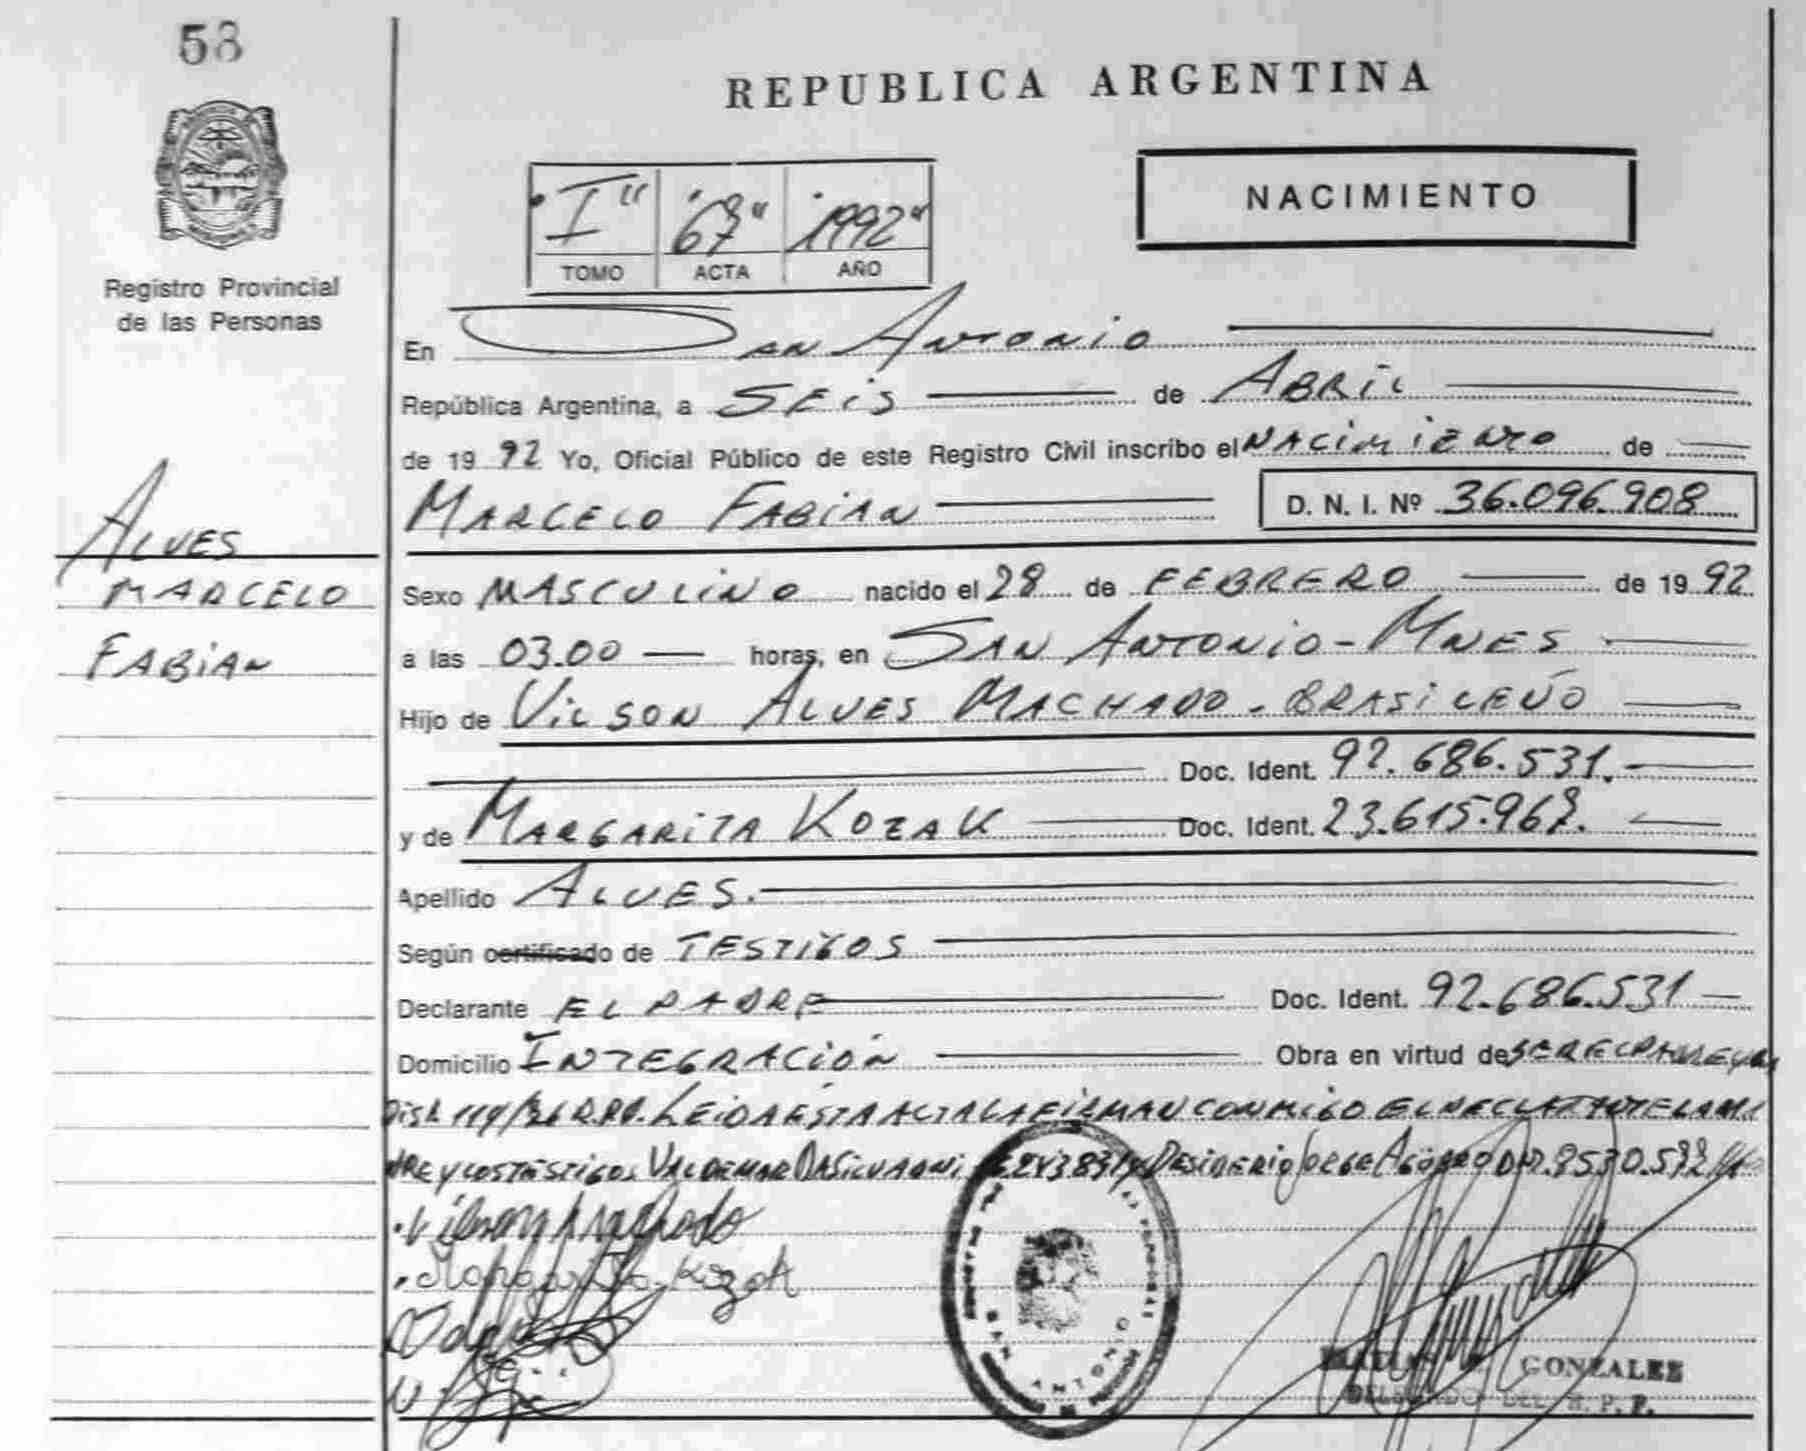 58
REPUBLICA ARGENTINA
NACIMIENTO
"I" "67" "1992"
TOMO ACTA AÑO
Registro Provincial
de las Personas
En San Antonio
República Argentina, a SEIS de ABRIL
de 1992 Yo, Oficial Público de este Registro Civil inscribo el NACIMIENTO de
MARCELO FABIAN D. N. I. Nº 36.096.908
ALVES
MARCELO
FABIAN
Sexo MASCULINO nacido el 28 de FEBRERO de 1992
a las 03.00 horas, en SAN ANTONIO-MNES
Hijo de VILSON ALVES MACHADO - BRASILEÑO
Doc. Ident. 92.686.531.
y de MARGARITA KOZAK Doc. Ident. 23.615.967.
Apellido ALVES.
Según certificado de TESTIGOS
Declarante EL PADRE Doc. Ident. 92.686.531
Domicilio INTEGRACIÓN Obra en virtud de SER EL PADRE y
LEIDA ESTA ACTA LA FIRMAN CONMIGO EL DECLARANTE LA MA
DRE Y LOS TESTIGOS VALDEMAR DASILVA DNI DESIDERIO JORGE
Vilson A Machado
Margarita Kozak
SAN ANTONIO
GONZALEZ
DELEGADO DEL R. P. P.